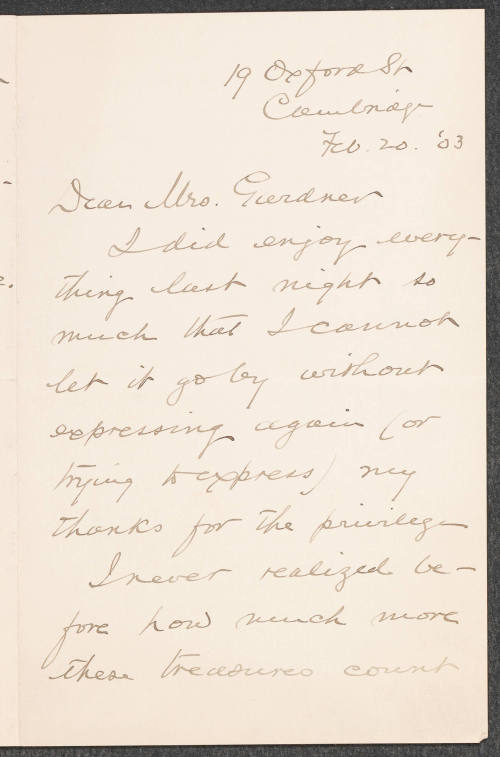 19 Oxford St
Cambridge
Feb. 20. '03
Dear Mrs. Gardner
I did enjoy every-
thing last night so
much that I cannot
let it go by without
expressing again (or
trying to express) my
thanks for the privilege
I never realized be-
fore how much more
these treasures count